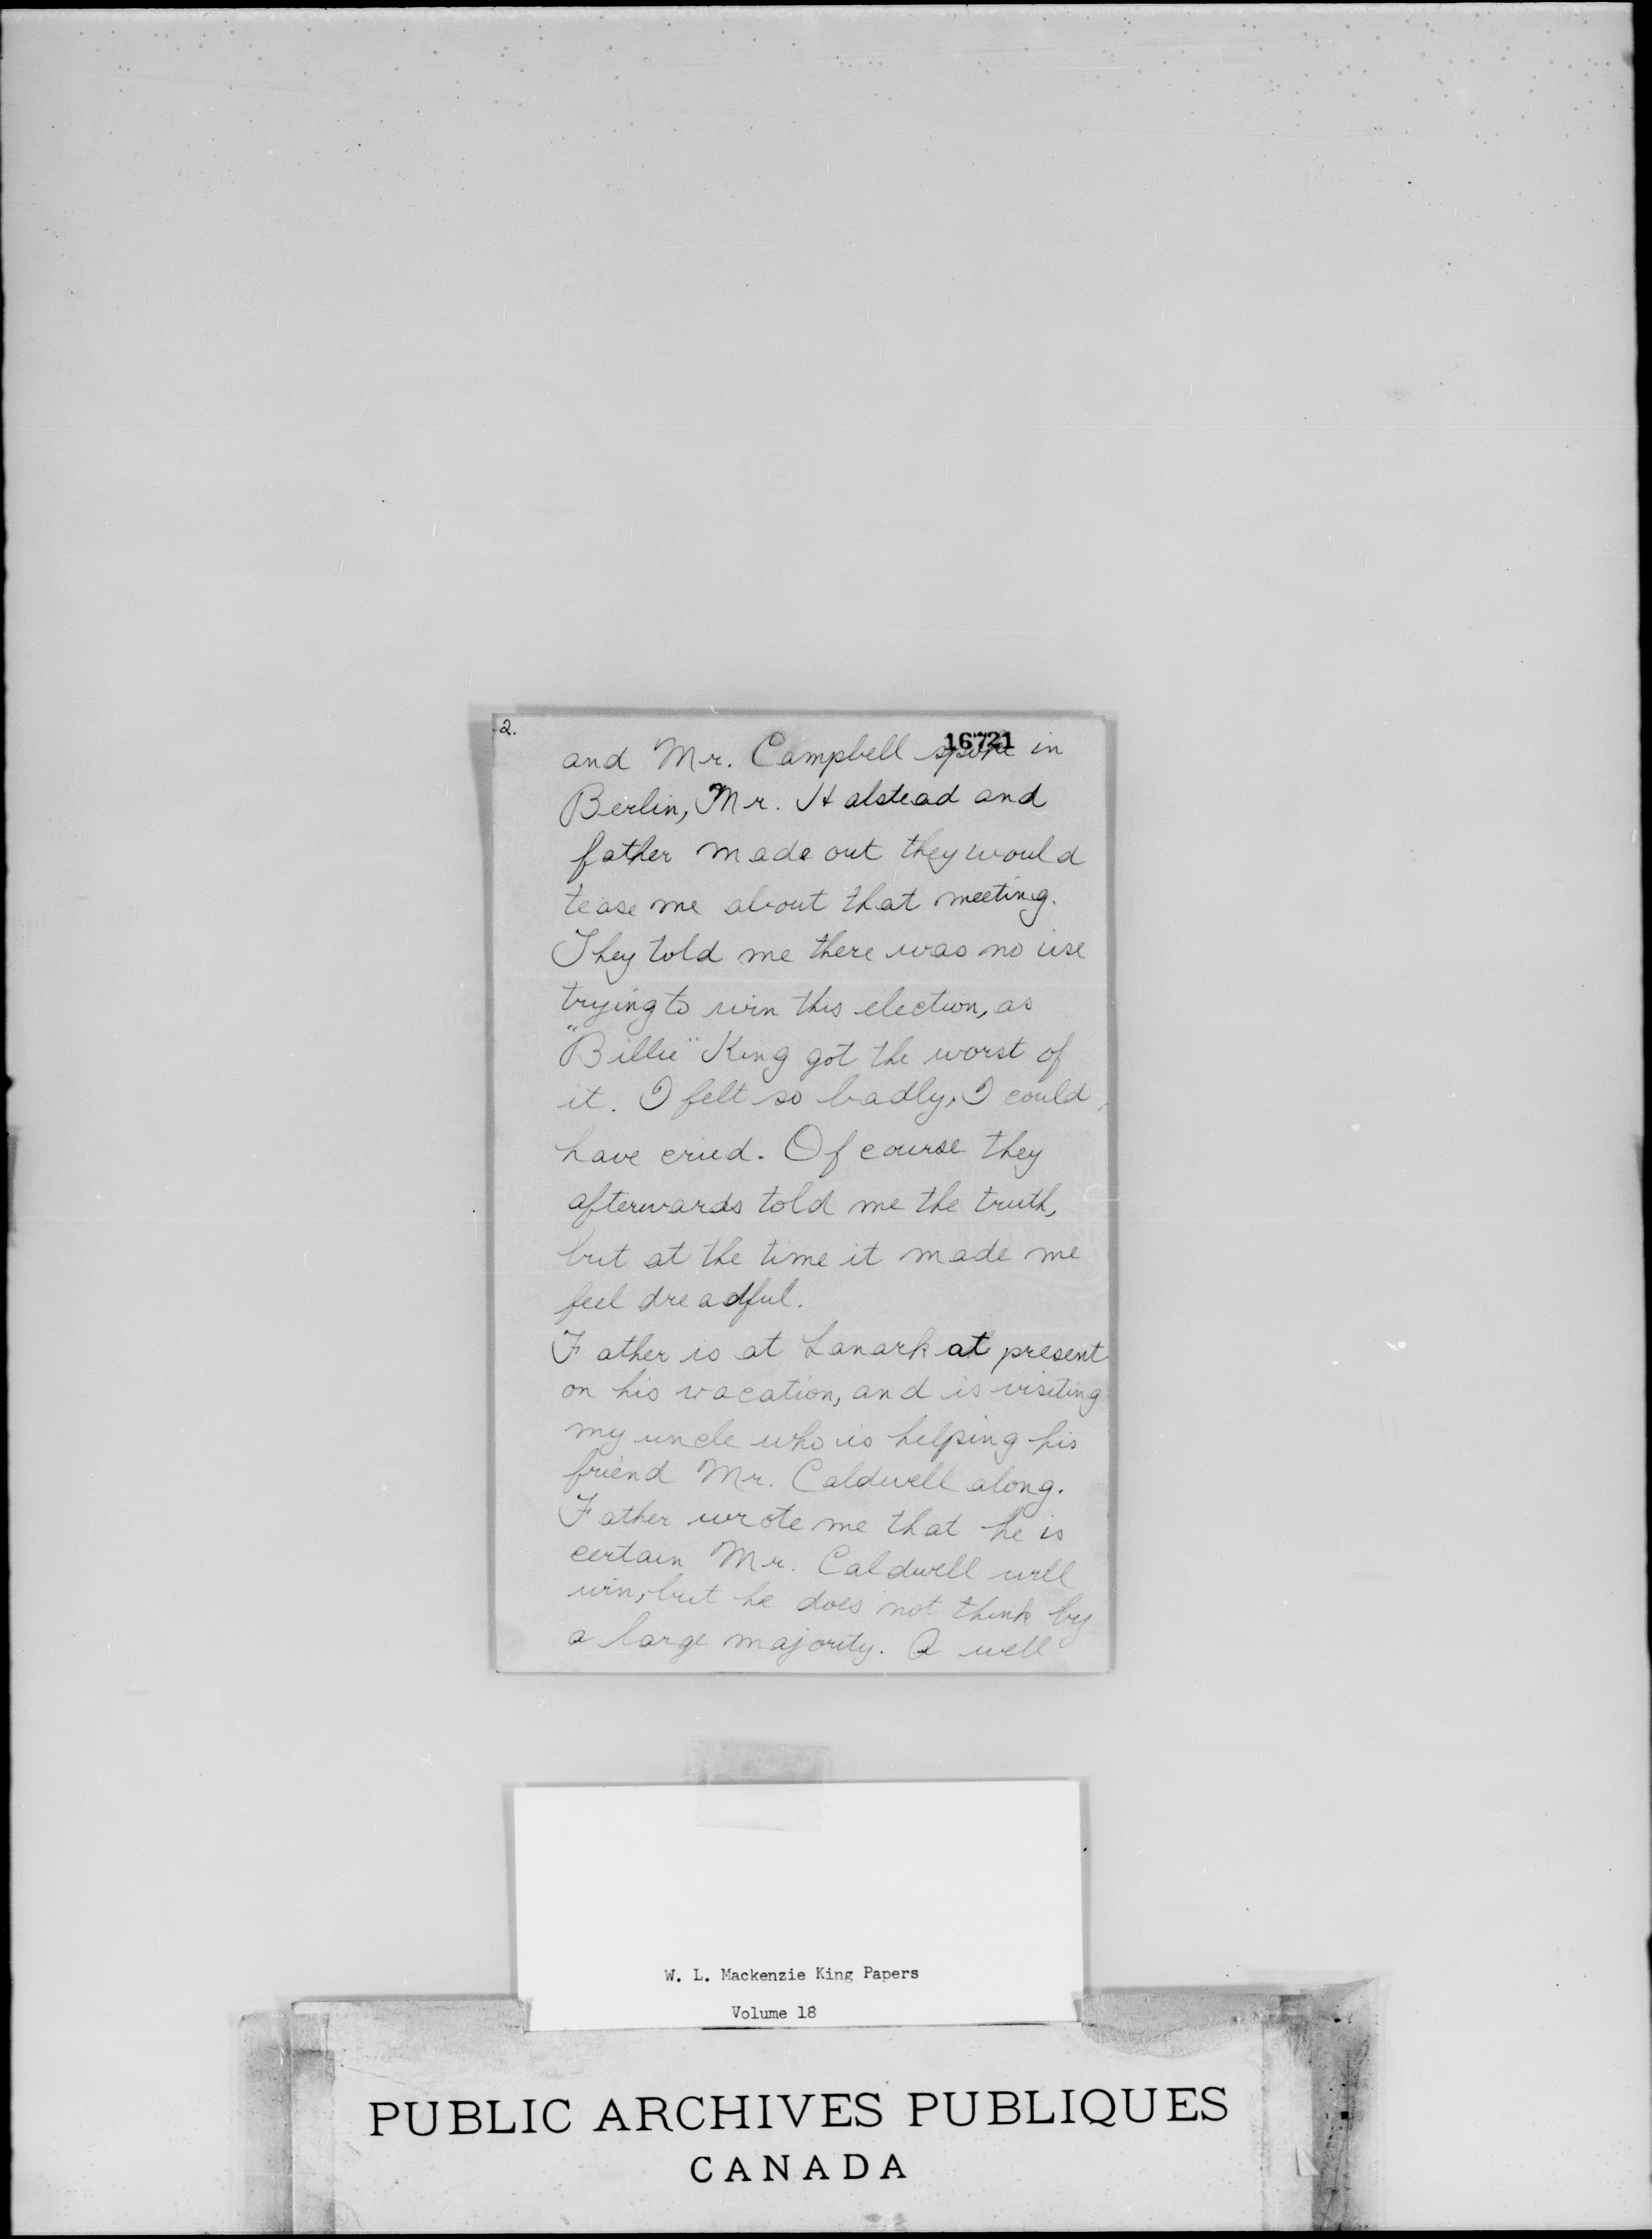 2.
16721
and Mr. Campbell spoke in
Berlin, Mr. Halstead and
father made out they would
tease me about that meeting.
They told me there was no use
trying to win this election, as
"Billie" King got the worst of
it. I felt so badly, I could
have cried. Of course they
afterwards told me the truth,
but at the time it made me
feel dreadful.
Father is at Lanark at present
on his vacation, and is visiting
my uncle who is helping his
friend Mr. Caldwell along.
Father wrote me that he is
certain Mr. Caldwell will
win, but he does not think by
a large majority. A well
W. L. Mackenzie King Papers
Volume 18
PUBLIC ARCHIVES PUBLIQUES
CANADA